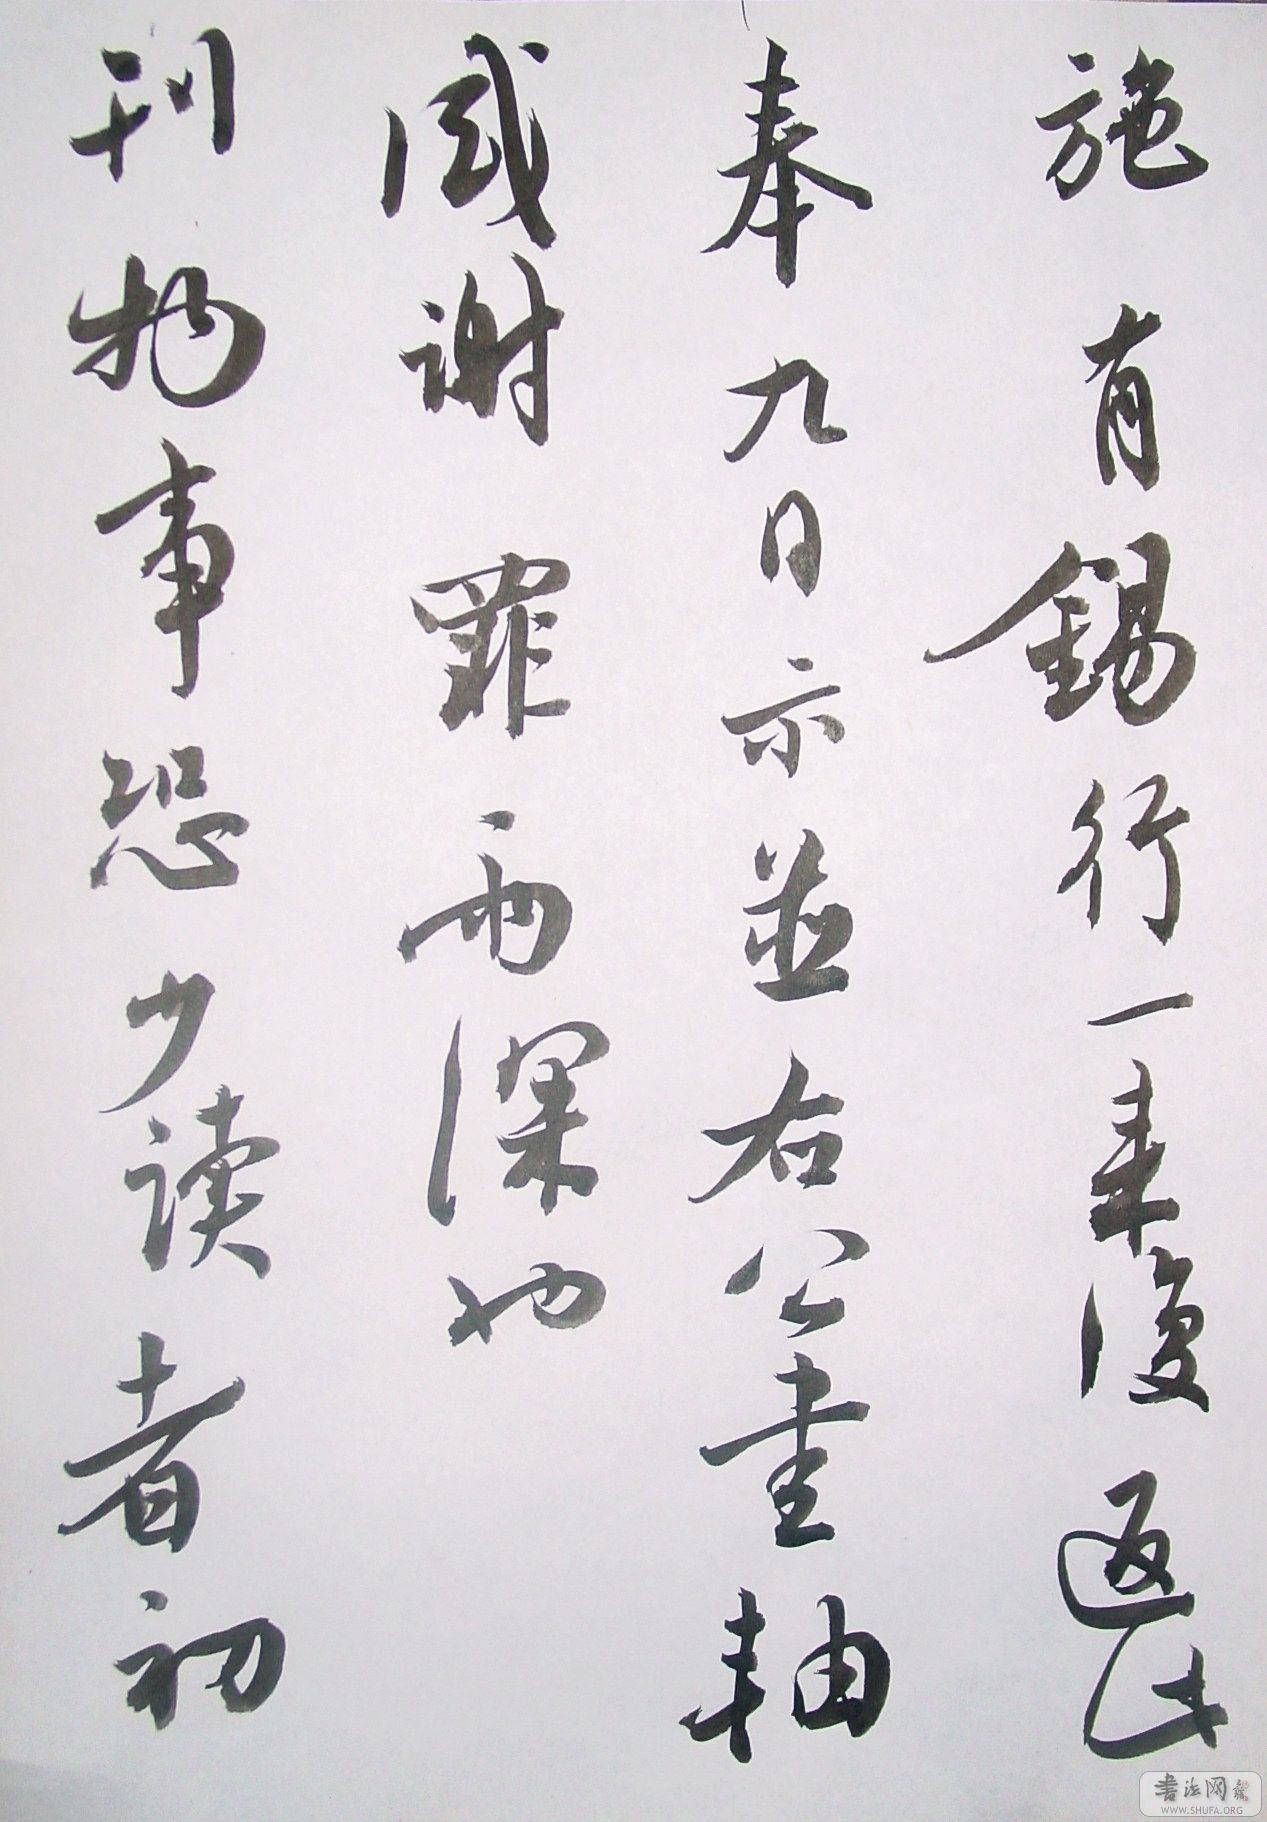 施有錫行一来復返此
奉九日示並右公書軸
感谢罪而深也
刊物事恐少读者初
書法网
WWW.SHUFA.ORG